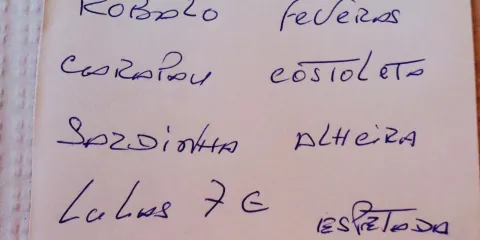 ROBALO FEVERAS
CARAPAU COSTOLETA
SARDINHA ALHEIRA
LULAS 7 €
ESPETADA